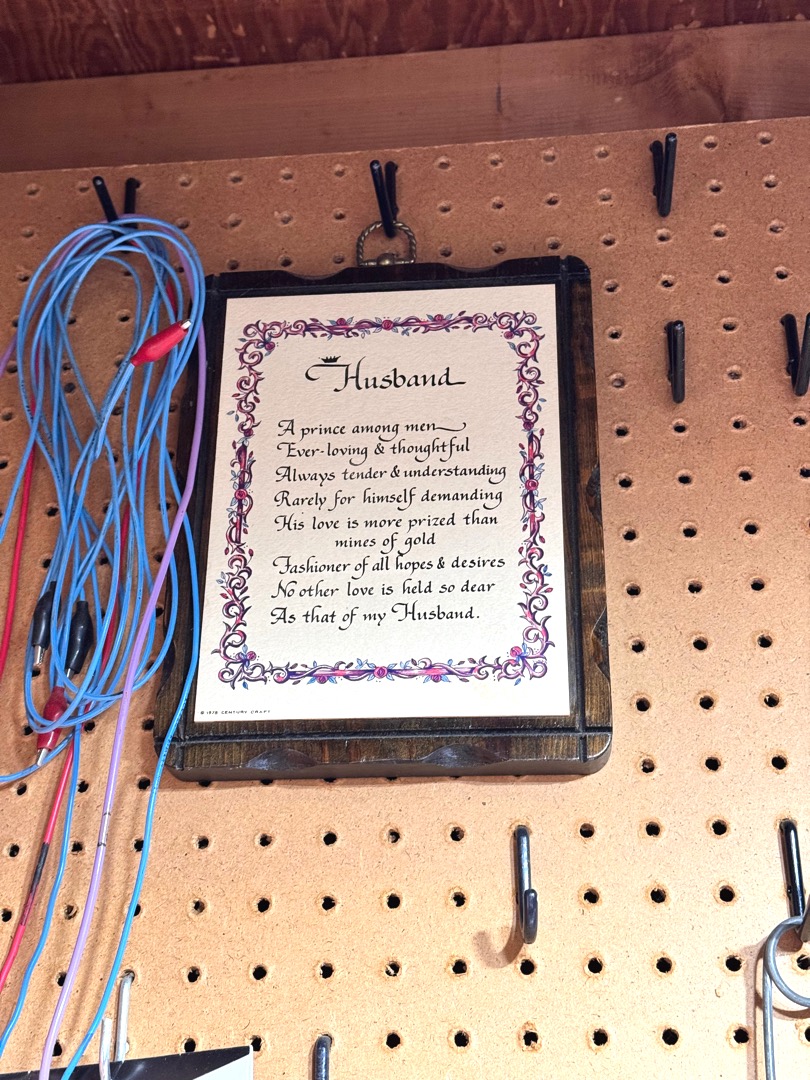 Husband
A prince among men
Ever-loving & thoughtful
Always tender & understanding
Rarely for himself demanding
His love is more prized than
mines of gold
Fashioner of all hopes & desires
No other love is held so dear
As that of my Husband.
© 1978 CENTURY CRAFT